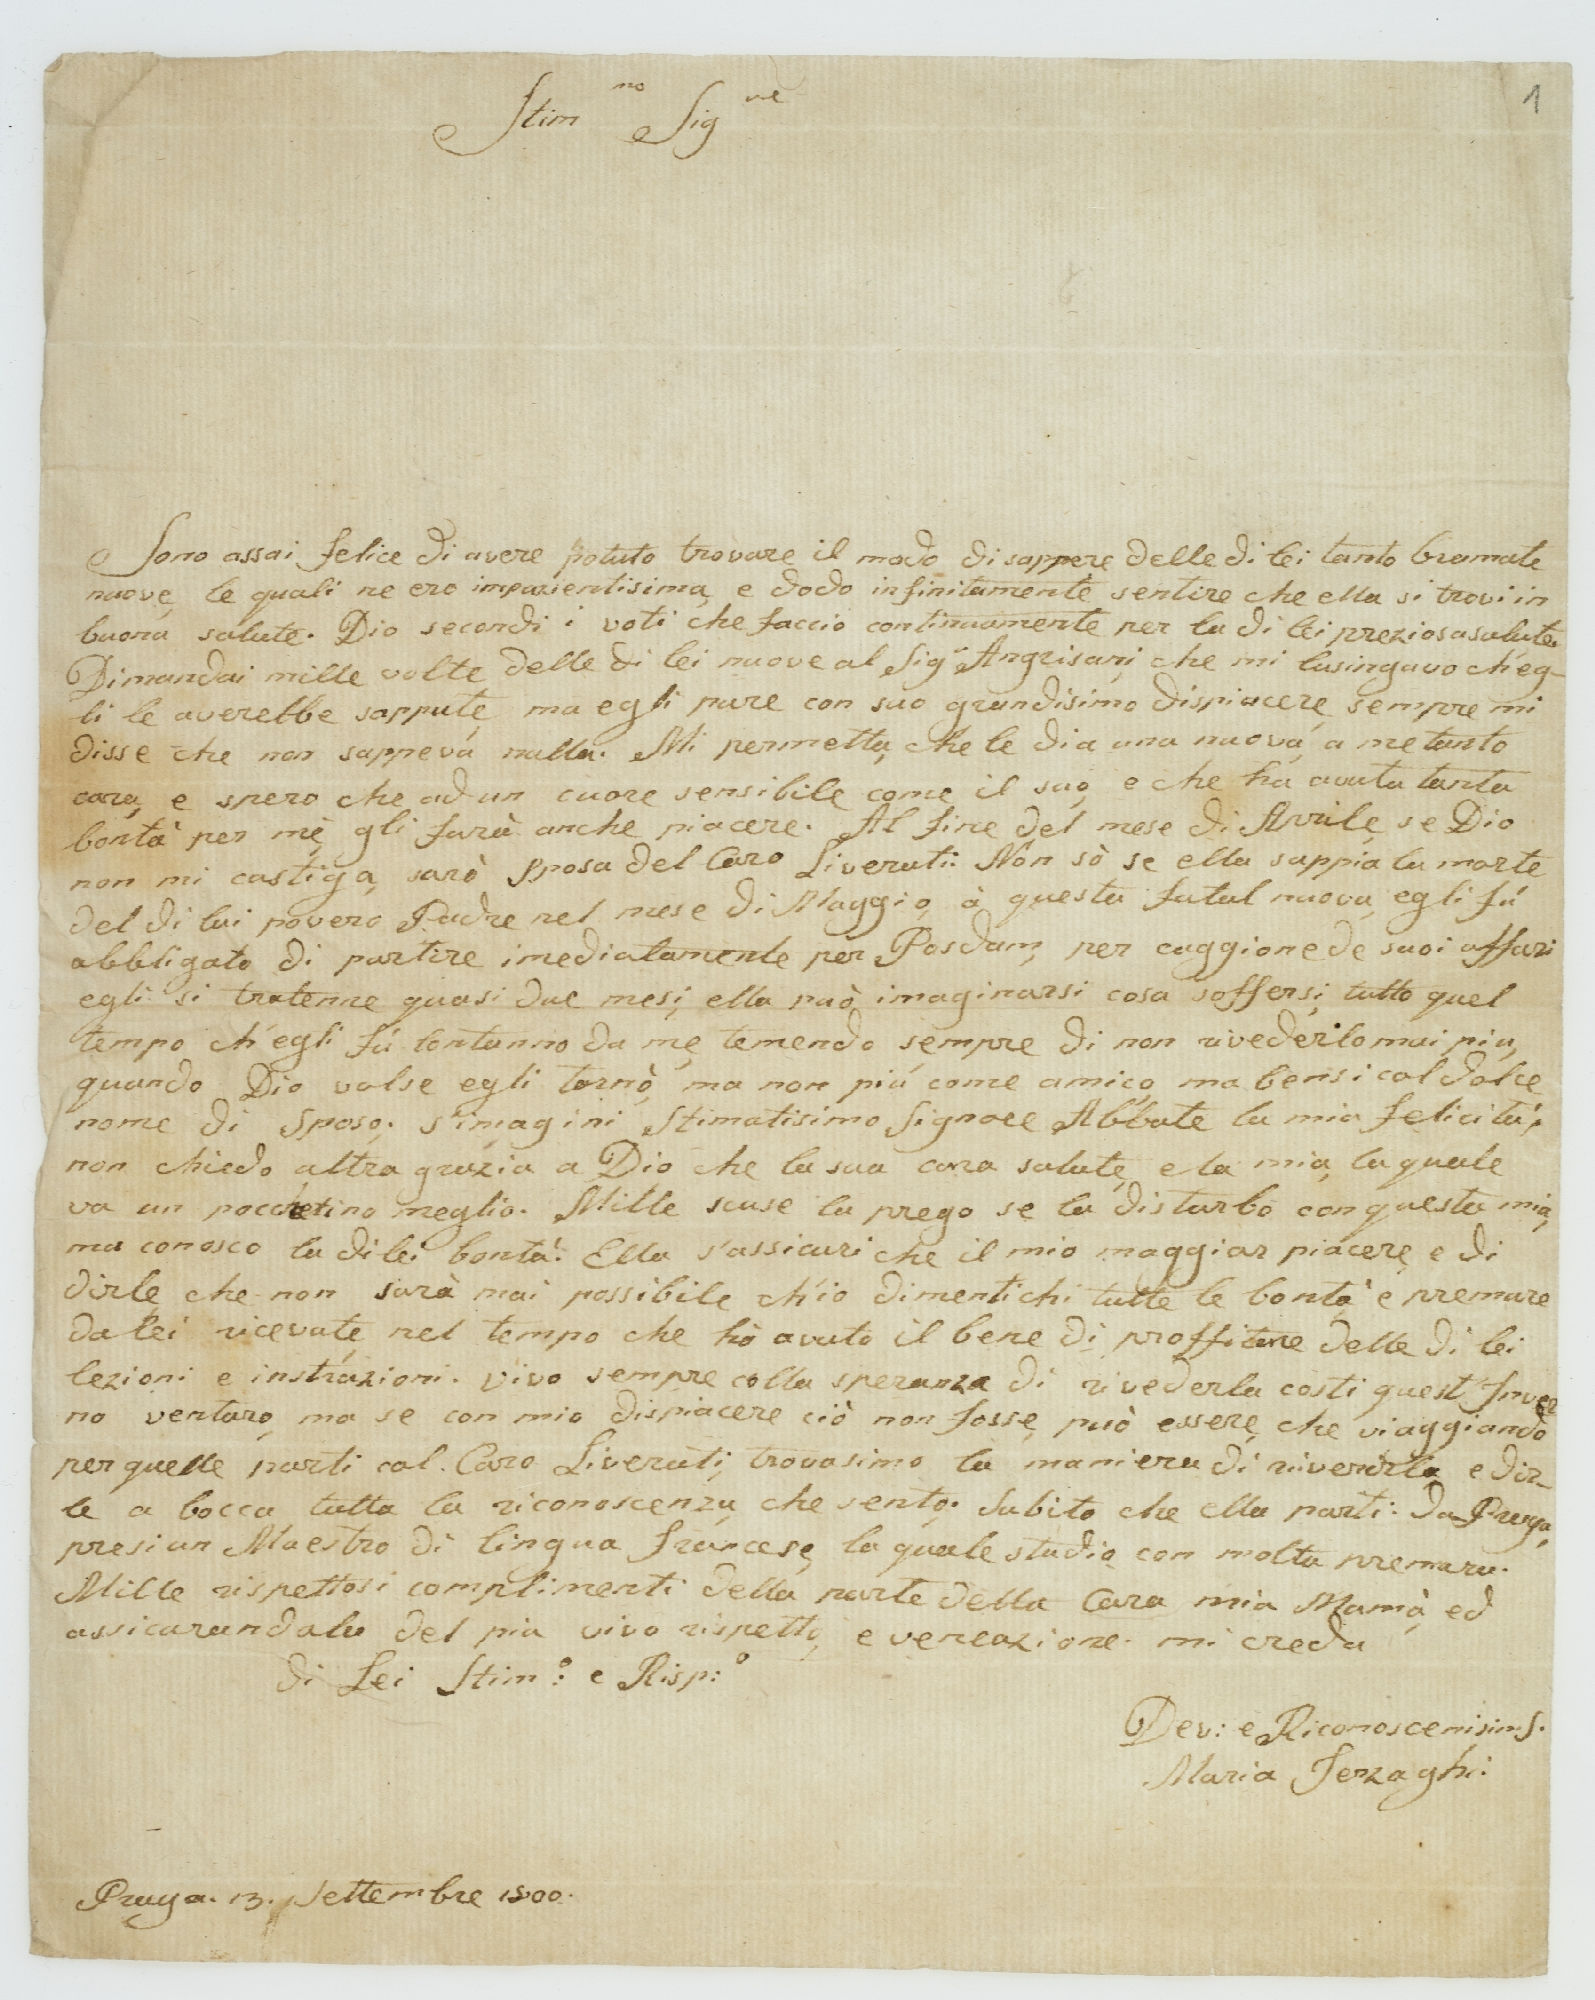 1
Stim.mo Sig.re
Sono assai felice di avere potuto trovare il modo di sappere delle di lei tanto bramate
nuove, le quali ne ero impazientisima, e dodo infinitamente sentire che ella si trovi in
buona salute. Dio secondi i voti che faccio continuamente per la di lei preziosa salute.
Dimandai mille volte delle di lei nuove al Sigr Angrisani, che mi lusingavo ch'eg-
li le averebbe sappute, ma egli pure con suo grandisimo dispiacere, sempre mi
disse che non sappeva nulla. Mi permetta, che le dia una nuova, a me tanto
cara, e spero che ad un cuore sensibile come il suo, e che ha avuta tanta
bontà per mè, gli farà anche piacere. Al fine del mese di Avrile, se Dio
non mi castiga, sarò Sposa del Caro Liverati. Non sò se ella sappia la morte
del di lui povero Padre nel mese di Maggio, à questa fatal nuova, egli fú
abbligato di partire imediatamente per Posdam, per caggione de suoi affari
egli si tratenne quasi due mesi, ella può imaginarsi cosa soffersi, tutto quel
tempo ch'egli fú lontanno da me, temendo sempre di non rivederlo mai piu,
quando Dio volse egli tornò, ma non piú come amico, ma bensi col dolce
nome di Sposo. s'imagini Stimatisimo Signore Abbate la mia felicità,
non chiedo altra grazia a Dio che la sua cara salute, e la mia, la quale
va un pocchetino meglio. Mille scuse la prego se la disturbo con questa mia,
ma conosco la di lei bontà. Ella s'assicuri che il mio maggior piacere, e di
dirle che non sarà mai possibile ch'io dimentichi tutte le bontà e premure
da lei ricevute, nel tempo che hò avuto il bene di proffitare delle di lei
lezioni e instruzioni. Vivo sempre colla speranza di rivederla costi quest'Inver
no venturo, ma se con mio dispiacere ciò non fosse, può essere, che viaggiando
per quelle parti col Caro Liverati, trovasimo la maniera di riverirla e dir-
le a bocca tutta la riconoscenza, che sento. Subito che ella parti da Praga,
presi un Maestro di lingua francese, la quale studio con molta premura.
Mille rispettosi complimenti della parte della Cara mia Mamà, ed
assicurandola del piu vivo rispetto, e venerazione. mi creda
di Lei Stim:o e Risp:o
Dev: e Riconoscenisim S.
Maria Serzaghi.
Praga. 13. Settembre 1800.